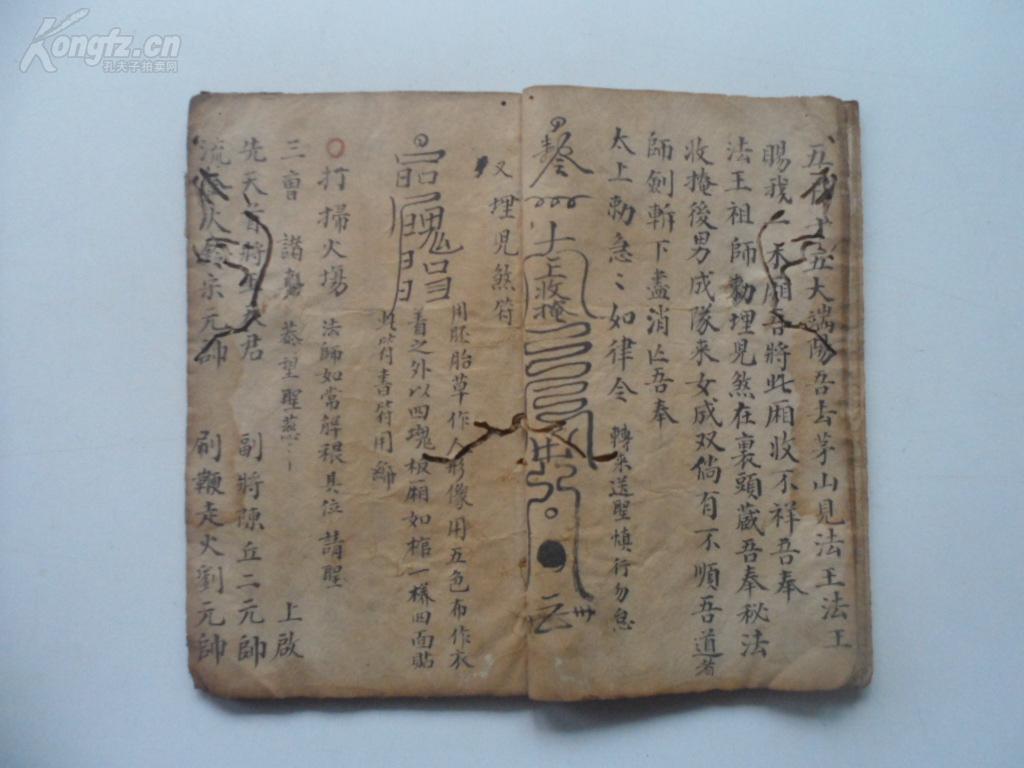 Kongfz.cn
孔夫子拍卖网
五大端陽吾去茅山見法王法王
賜我一厢吾將此厢收不祥吾奉
法王祖師勅埋児煞在裏頭藏吾奉秘法
收掩後男成隊来女成双倘有不順吾道者
師剑斬下盡消亾吾奉
太上勅急〻如律令 轉来送聖慎行勿怠
上收掩
又埋児煞符
用胚胎草作人形像用五色布作衣
着之外以四塊板厢如棺一樣四面貼
此符書符用
〇打掃火塲 法師如常解穢具位請聖
三曹 諸 聖 上啟
先天 將 君 副將陳丘二元帥
流金火 宗元帥 刷鞭走火劉元帥